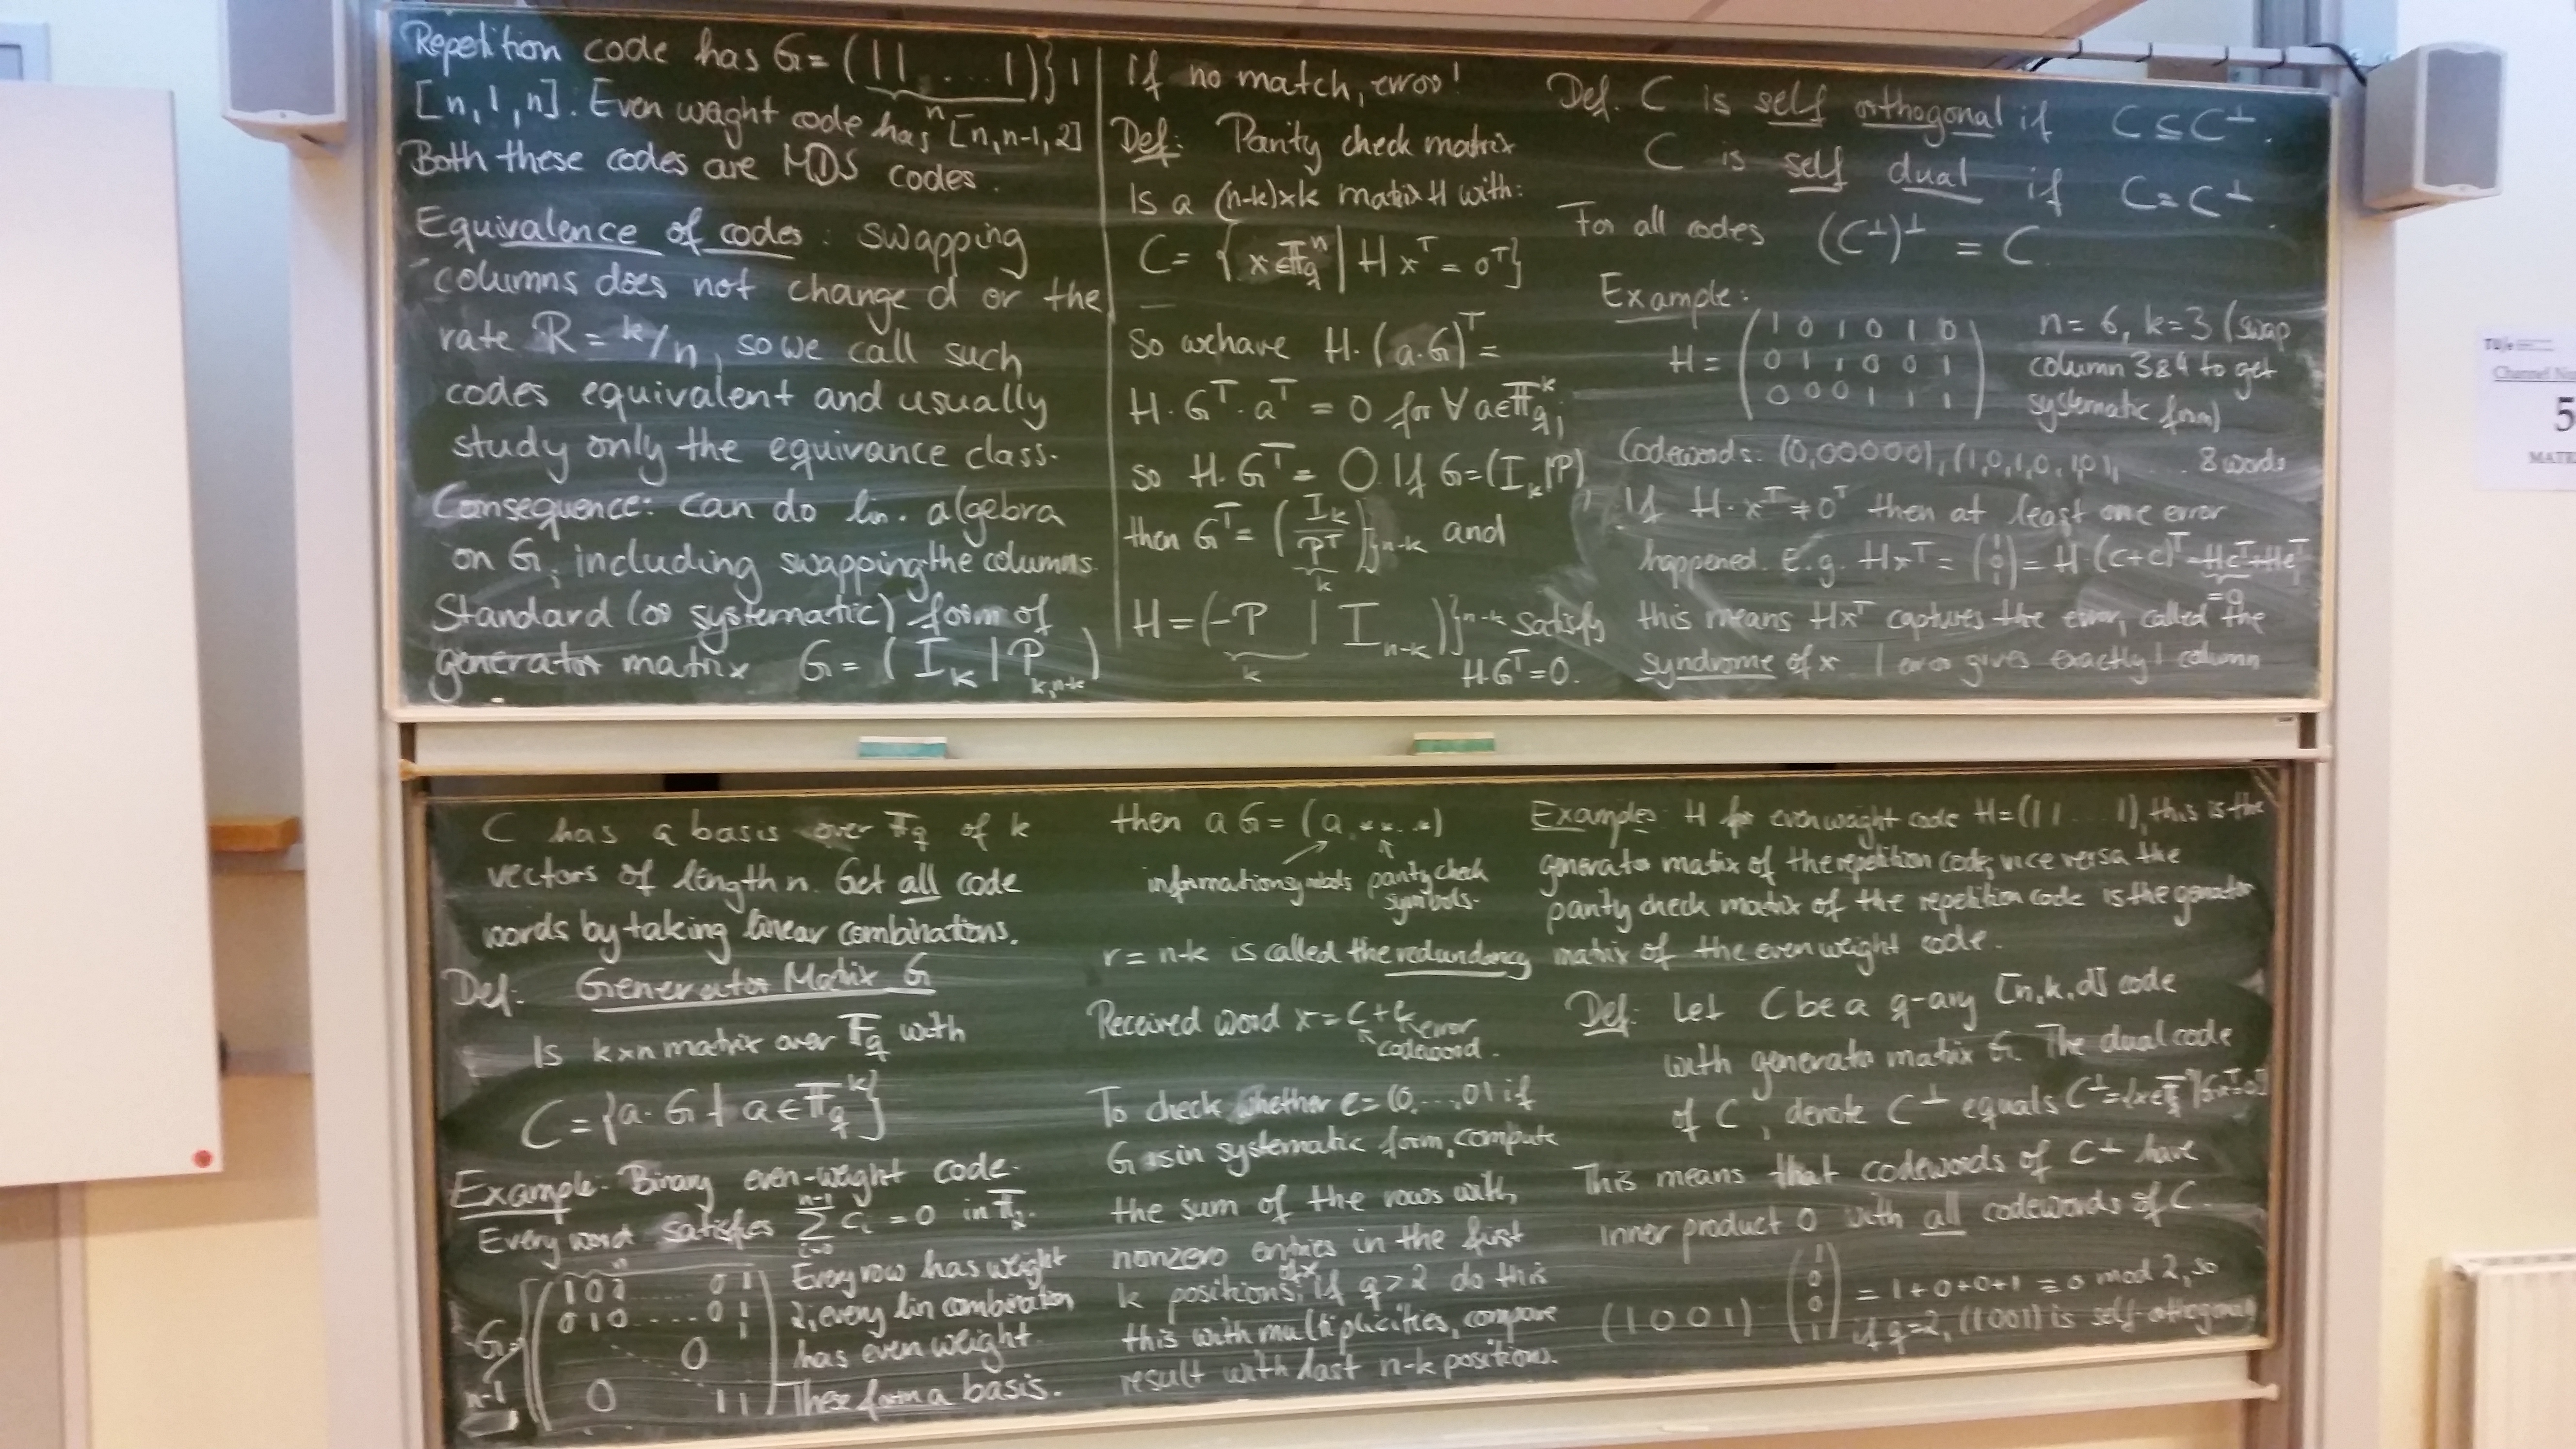 Repetition code has G = (11 ... 1)}1
n
[n,1,n]. Even waght code has [n,n-1,2]
Both these codes are MDS codes.
Equivalence of codes: swapping
columns does not change d or the
rate R = k/n, so we call such
codes equivalent and usually
study only the equivance class.
Consequence: can do lin. algebra
on G, including swapping the columns.
Standard (or systematic) form of
generator matrix G = (I_k | P_{k,n-k})
If no match, error!
Def: Parity check matrix
Is a (n-k)×k matrix H with:
C = {x∈𝔽_q^n | Hx^T = 0^T}
So we have H·(a·G)^T =
H·G^T·a^T = 0 for ∀a∈𝔽_q^k,
so H·G^T = 0. If G=(I_k|P),
then G^T = (I_k / P^T)}n-k and
k
H = (-P | I_{n-k})}n-k satisfy
k
HG^T=0.
Def. C is self orthogonal if C ⊆ C^⊥.
C is self dual if C = C^⊥.
For all codes (C^⊥)^⊥ = C.
Example:
H = (1 0 1 0 1 0
0 1 1 0 0 1
0 0 0 1 1 1)
n=6, k=3 (swap
column 3&4 to get
systematic form)
Codewords: (0,00000), (1,0,1,0,10), .... 8 words
If H·x^T ≠ 0^T then at least one error
happened. E.g. Hx^T = (1 0 1) = H(c+e)^T = Hc^T+He^T
=0
this means Hx^T captures the error, called the
syndrome of x. 1 error gives exactly 1 column
C has a basis over 𝔽_q of k
vectors of length n. Get all code
words by taking linear combinations.
Def: Generator Matrix G
Is k×n matrix over 𝔽_q with
C = {a·G | a∈𝔽_q^k}
Example: Binary even-weight code.
Every word satisfies Σ_{i=0}^{n-1} c_i = 0 in 𝔽_2.
n
G=
n-1
(1 0 0 ... 0 1
0 1 0 .... 0 1
1
0
0 1 1)
Every row has weight
2, every lin combination
has even weight.
These form a basis.
then aG = (a, **..*)
information symbols parity check
symbols.
r = n-k is called the redundancy
Received word x = c+e error
codeword.
To check whether e = (0,...,0) if
G is in systematic form, compute
the sum of the rows with
nonzero entries in the first
k positions of x, if q>2 do this
this with multiplicities, compare
result with last n-k positions.
Example: H for even waght code H=(11 ... 1), this is the
generator matrix of the repetition code, vice versa the
parity check matrix of the repetition code is the generator
matrix of the even weight code.
Def: Let C be a q-ary [n,k,d] code
with generator matrix G. The dual code
of C, denote C^⊥ equals C^⊥={x∈𝔽_q^n|Gx^T=0^T}
This means that codewords of C^⊥ have
inner product 0 with all codewords of C.
(1 0 0 1) (1 0 0 1) = 1+0+0+1 ≡ 0 mod 2, so
if q=2, (1001) is self-orthogonal
TU/e
Channel
5